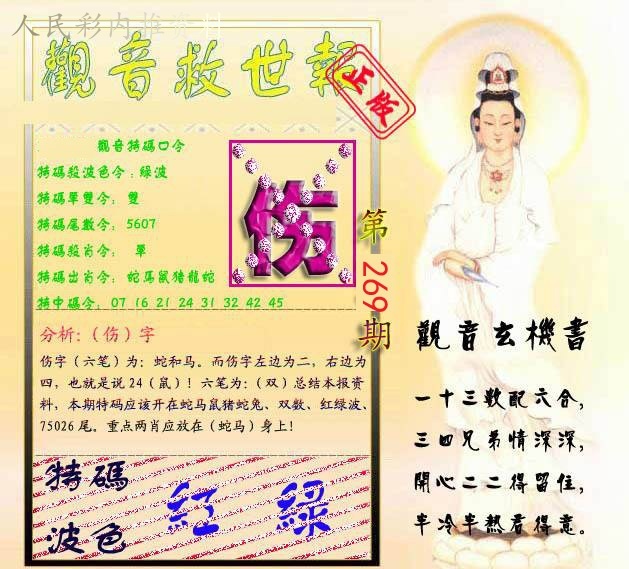 人民彩内推资料
觀音救世報
正版
觀音特碼口令
特碼殺波色令：綠波
特碼單雙令： 雙
特碼尾數令： 5607
特碼殺肖令： 單
特碼出肖令： 蛇馬鼠猪龍蛇
特中碼令： 07 16 21 24 31 32 42 45
伤
第269期
分析:（伤）字
伤字（六笔）为：蛇和马。而伤字左边为二，右边为
四，也就是说24（鼠）！六笔为：（双）总结本报资
料，本期特码应该开在蛇马鼠猪蛇兔、双数、红绿波、
75026尾。重点两肖应放在（蛇马）身上！
特碼
波色
紅 綠
觀音玄機書
一十三数配六合，
三四兄弟情深深，
開心二二得留住，
半冷半熱君得意。